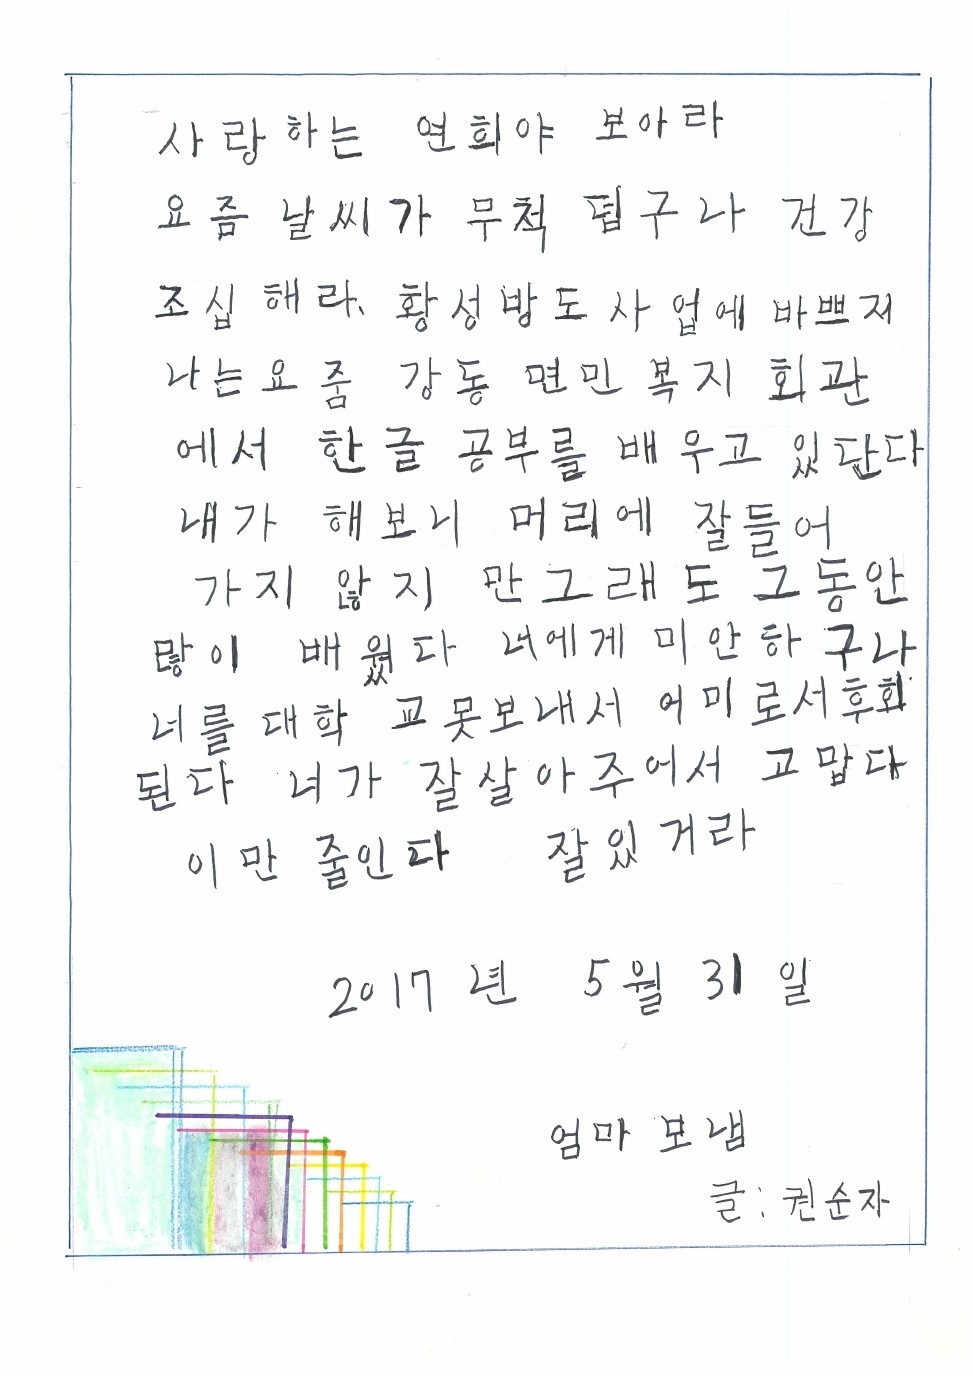 사랑하는 연희야 보아라
요즘 날씨가 무척 덥구나 건강
조십해라、황성방도 사업에 바쁘저
나는요 줌 강동 면민 복지 회관
에서 한글 공부를 배우고 있단다
내가 해보니 머리에 잘들어
가지 않지 만그래도 그동안
많이 배웠다 너에게 미안하구나
너를 대학 교못보내서 어미로서후회
된다 너가 잘살아주어서 고맙다
이만 줄인다 잘있거라
2017년 5월 31일
엄마 보냄
글: 권순자